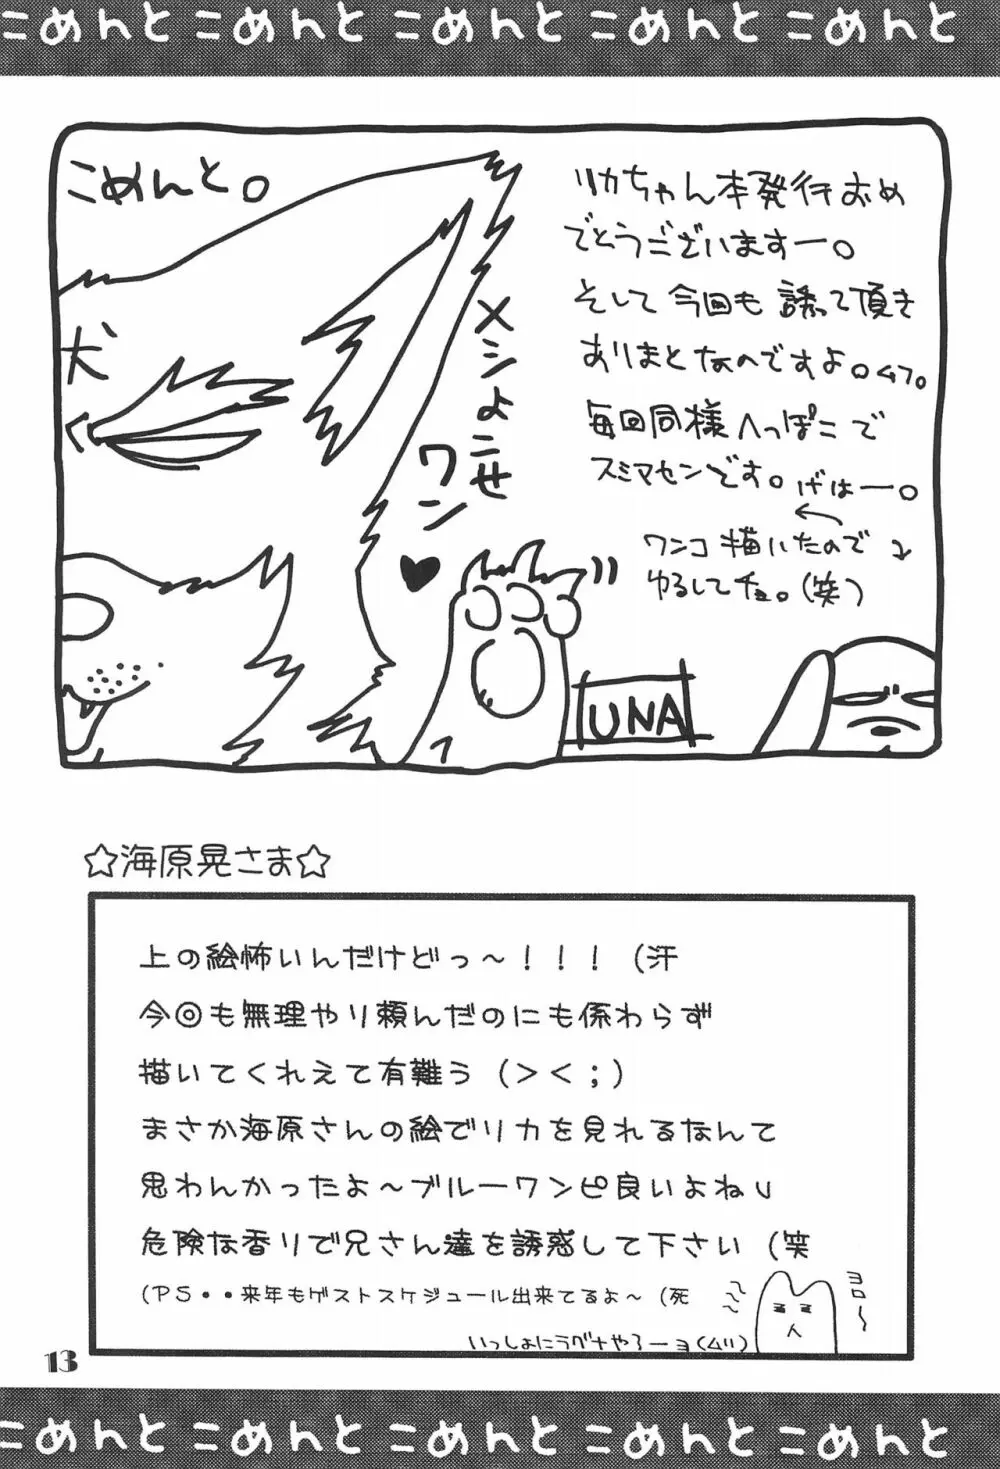 こめんと こめんと こめんと こめんと こめんと
こめんと。
犬
メシよこせ
ワン
リカちゃん本発行おめ
でとうございますー。
そして今回も誘って頂き
ありまとなのですよ。ムフ。
毎回同様へっぽこで
スミマセンです。げはー。
ワンコ描いたので
ゆるしてチョ。(笑)
UNA
☆海原晃さま☆
上の絵怖いんだけどっ～！！！（汗
今回も無理やり頼んだのにも係わらず
描いてくれえて有難う（＞＜；）
まさか海原さんの絵でリカを見れるなんて
思わんかったよ～ブルーワンピ良いよね∪
危険な香りで兄さん達を誘惑して下さい（笑
（PS・・来年もゲストスケジュール出来てるよ～（死
いっしょにラグナやろーヨ(ムリ)
ヨロ～
13
こめんと こめんと こめんと こめんと こめんと